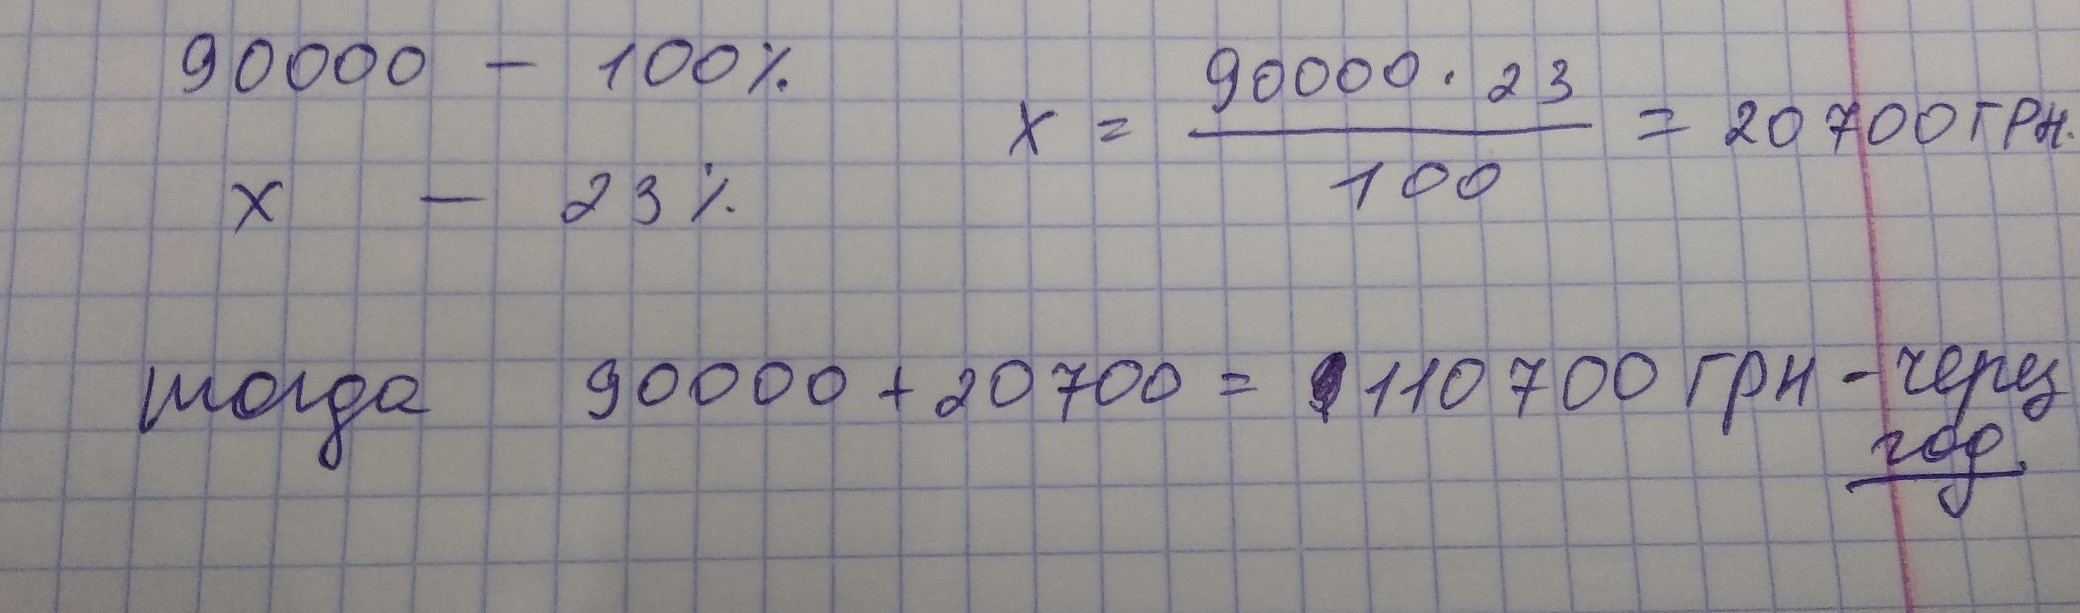 90000 - 100%
x - 23%
x = 90000 · 23 / 100 = 20700 грн.
тогда 90000 + 20700 = 110700 грн - через
год.